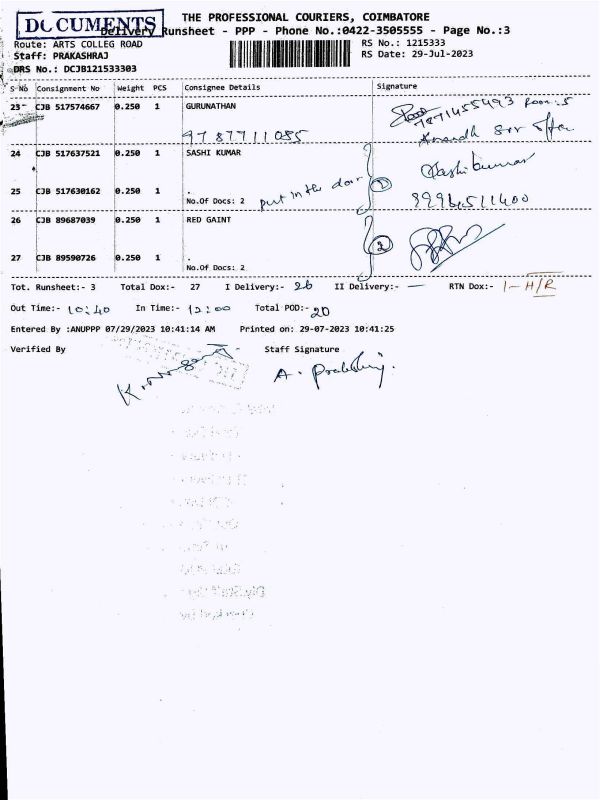 DOCUMENTS
THE PROFESSIONAL COURIERS, COIMBATORE
Delivery Runsheet - PPP - Phone No.:0422-3505555 - Page No.:3
Route: ARTS COLLEG ROAD
RS No.: 1215333
Staff: PRAKASHRAJ
RS Date: 29-Jul-2023
DRS No.: DCJB121533303
S No Consignment No Weight PCS Consignee Details Signature
23 CJB 517574667 0.250 1 GURUNATHAN
Room:5
9787711085
24 CJB 517637521 0.250 1 SASHI KUMAR
Sashikumar
25 CJB 517630162 0.250 1 .
No.Of Docs: 2 put in the door 1
26 CJB 89687039 0.250 1 RED GAINT
2
27 CJB 89590726 0.250 1 .
No.Of Docs: 2
Tot. Runsheet:- 3 Total Dox:- 27 I Delivery:- 26 II Delivery:- — RTN Dox:- 1-H/R
Out Time:- 10:40 In Time:- 12:00 Total POD:- 20
Entered By :ANUPPP 07/29/2023 10:41:14 AM Printed on: 29-07-2023 10:41:25
Verified By Staff Signature